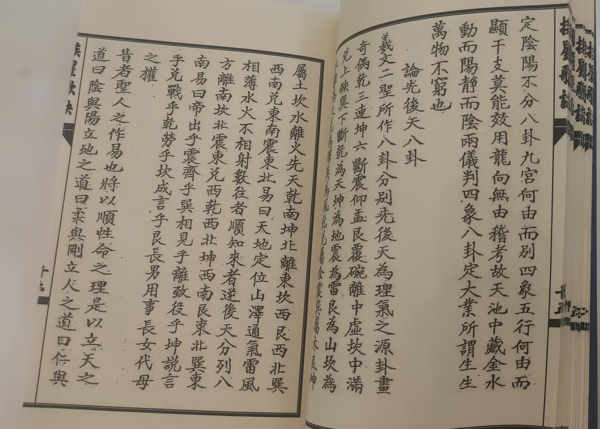 定陰陽不分八卦九宮何由而別四象五行何由而
顯干支莫能效用龍向無由稽考故天池中藏金水
動而陽靜而陰兩儀判四象八卦定大業所謂生生
萬物不窮也
論先後天八卦
羲文二聖所作八卦分別先後天為理氣之源卦畫
奇偶乾三連坤六斷震仰盂艮覆碗離中虛坎中滿
兌上缺巽下斷乾為天坤為地震為雷艮為山坎為
屬金震巽屬木艮坤
屬土坎水離火先天乾南坤北離東坎西艮西北巽
西南兌東南震東北易曰天地定位山澤通氣雷風
相薄水火不相射數往者順知來者逆後天分列八
方離南坎北震東兌西乾西北坤西南艮東北巽東
南易曰帝出乎震齊乎巽相見乎離致役乎坤說言
乎兌戰乎乾勞乎坎成言乎艮長男用事長女代母
之權
昔者聖人之作易也將以順性命之理是以立天之
道曰陰與陽立地之道曰柔與剛立人之道曰仁與